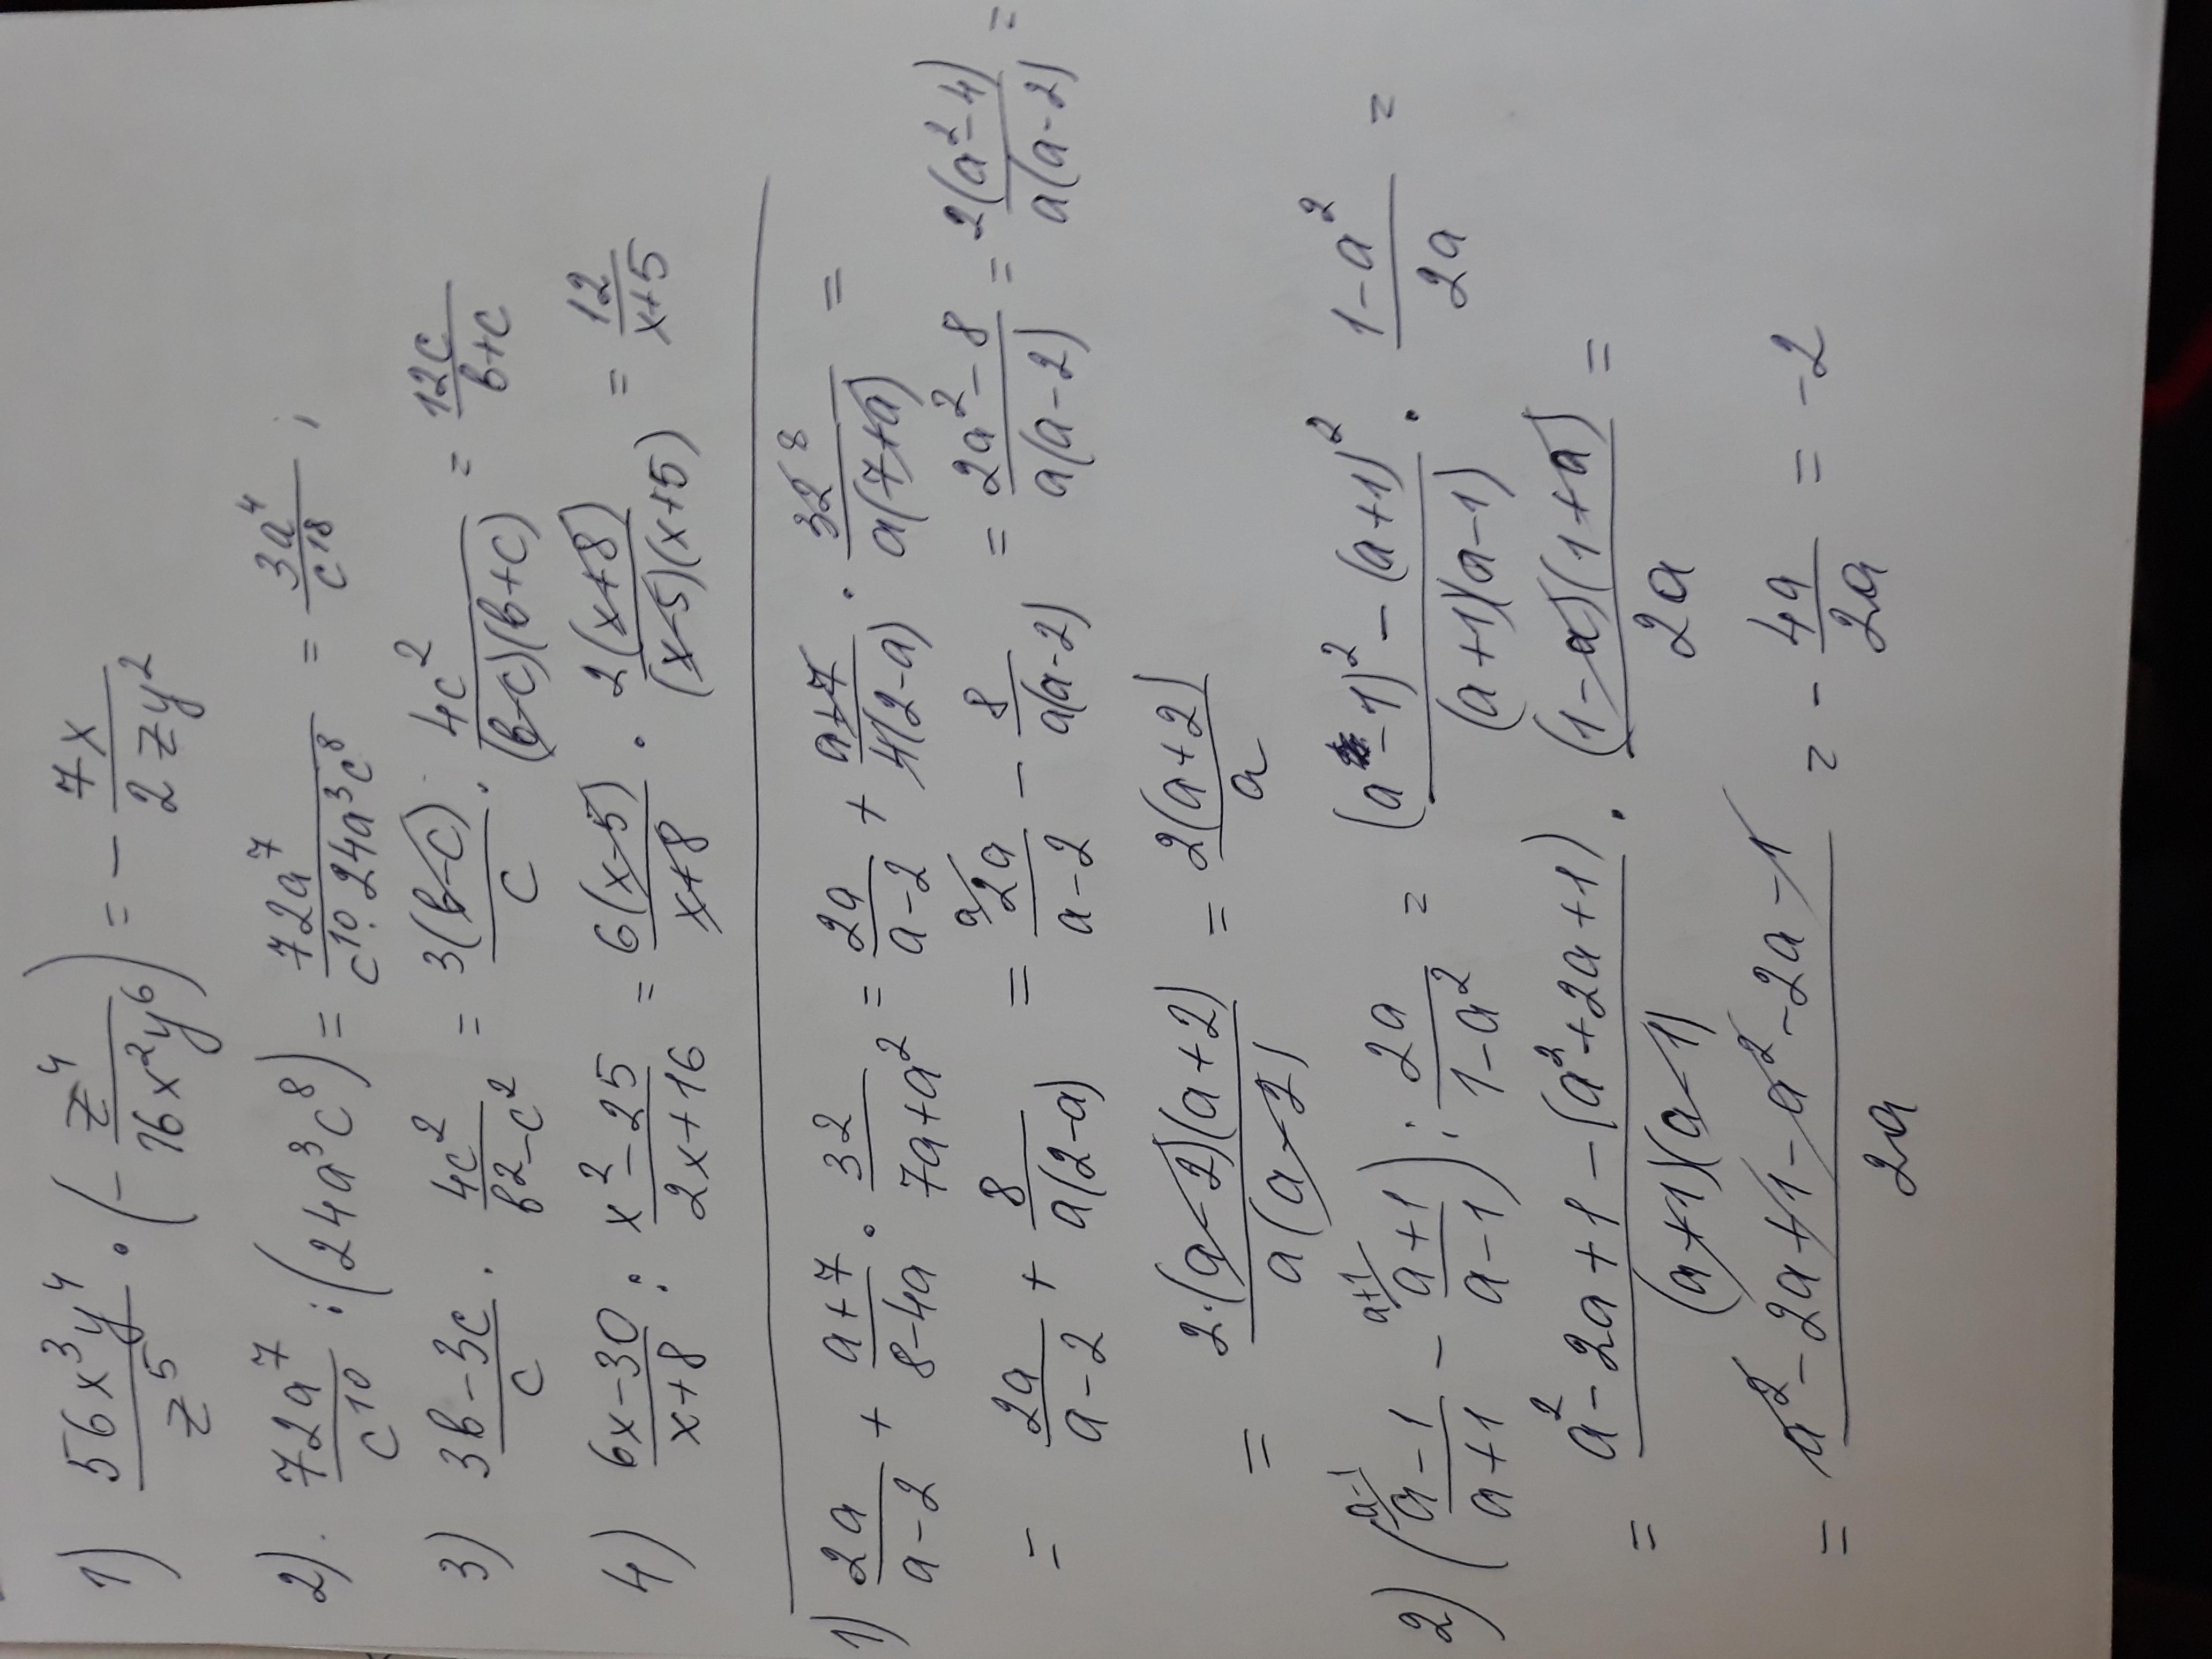 1) \frac{56x^3y^4}{z^5} · (-\frac{z^4}{16x^2y^6}) = -\frac{7x}{2zy^2}
2). \frac{72a^7}{c^{10}} : (24a^3c^8) = \frac{72a^7}{c^{10} · 24a^3c^8} = \frac{3a^4}{c^{18}} ;
3) \frac{3b-3c}{c} · \frac{4c^2}{b^2-c^2} = \frac{3(b-c)}{c} · \frac{4c^2}{(b-c)(b+c)} = \frac{12c}{b+c}
4) \frac{6x-30}{x+8} : \frac{x^2-25}{2x+16} = \frac{6(x-5)}{x+8} · \frac{2(x+8)}{(x-5)(x+5)} = \frac{12}{x+5}
1) \frac{2a}{a-2} + \frac{a+7}{8-4a} · \frac{32}{7a+a^2} = \frac{2a}{a-2} + \frac{a+7}{4(2-a)} · \frac{32^8}{a(7+a)} =
= \frac{2a}{a-2} + \frac{8}{a(2-a)} = \frac{^{a/}2a}{a-2} - \frac{8}{a(a-2)} = \frac{2a^2-8}{a(a-2)} = \frac{2(a^2-4)}{a(a-2)} =
= \frac{2·(a-2)(a+2)}{a(a-2)} = \frac{2(a+2)}{a}
2) (\frac{^{a-1/}a-1}{a+1} - \frac{^{a+1/}a+1}{a-1}) : \frac{2a}{1-a^2} = \frac{(a-1)^2-(a+1)^2}{(a+1)(a-1)} · \frac{1-a^2}{2a} =
= \frac{a^2-2a+1-(a^2+2a+1)}{(a+1)(a-1)} · \frac{(1-a)(1+a)}{2a} =
= \frac{a^2-2a+1-a^2-2a-1}{2a} = -\frac{4a}{2a} = -2